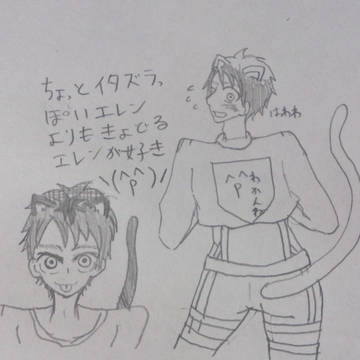 ちょっとイタズラっ
ぽいエレン
よりもきょどる
エレンが好き
\(^p^)/
はわわ
^p^
わかんね